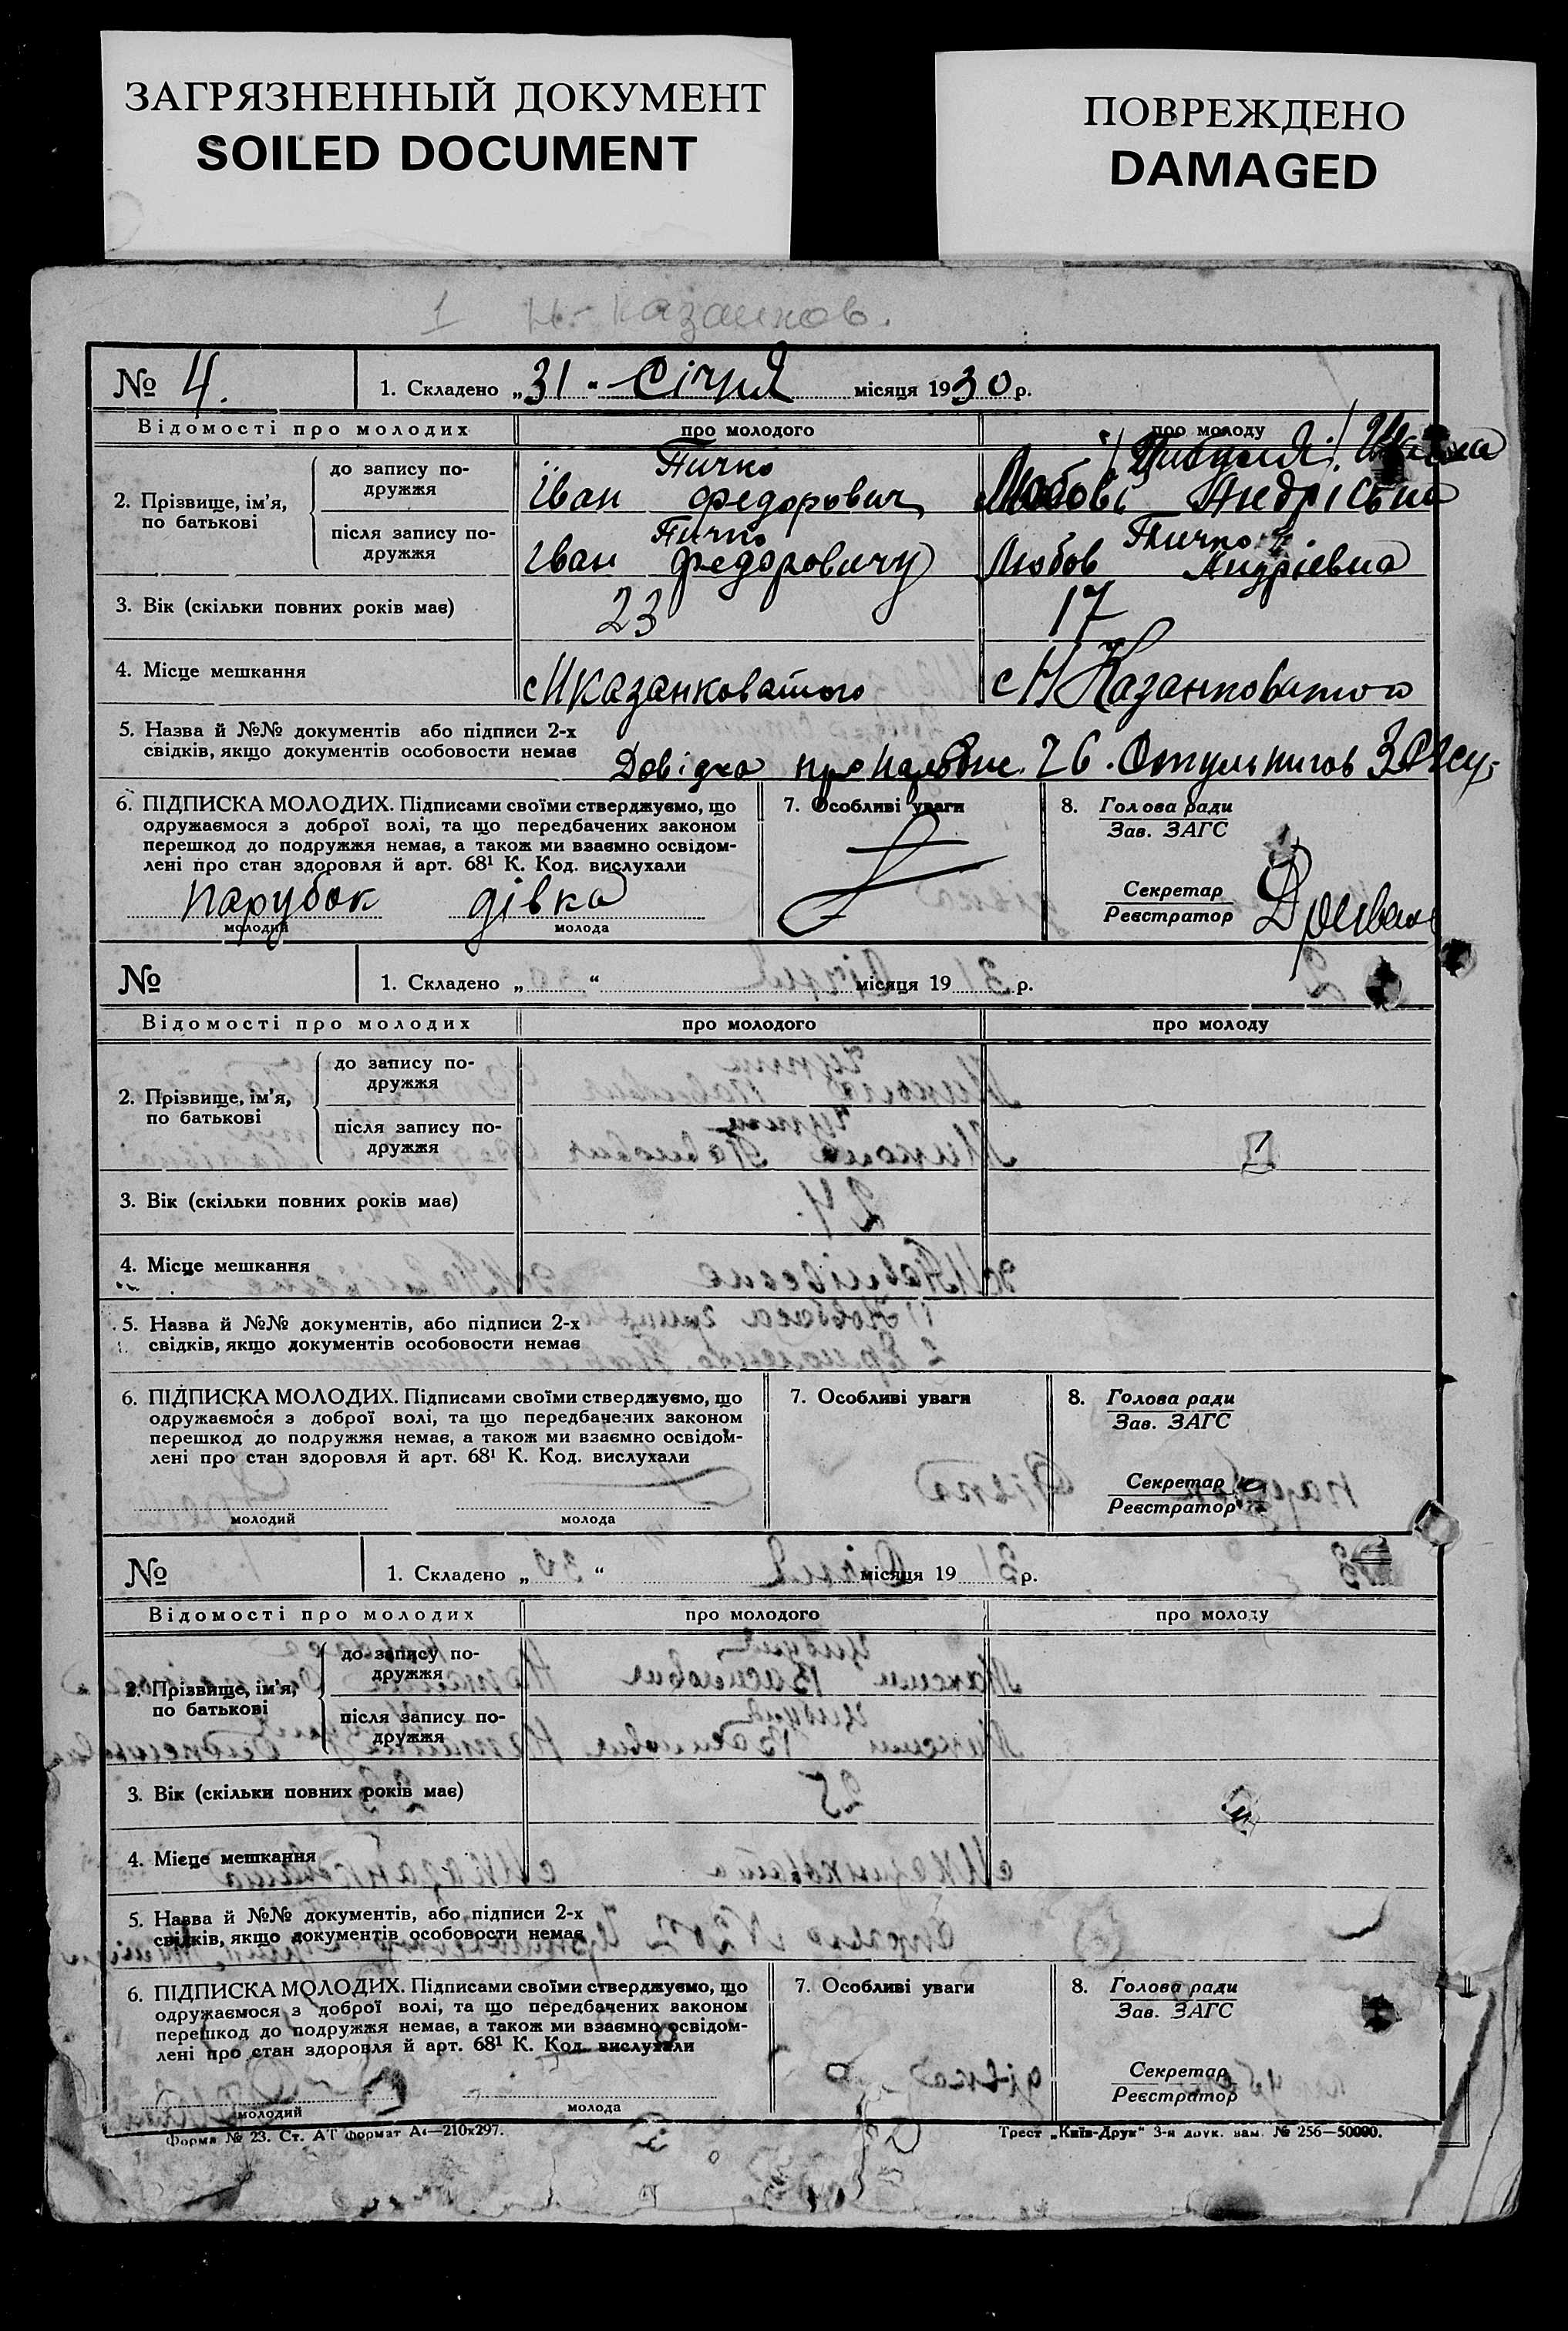 ЗАГРЯЗНЕННЫЙ ДОКУМЕНТ
SOILED DOCUMENT
ПОВРЕЖДЕНО
DAMAGED
1 Н-Казанков.
№ 4. 1. Складено „31“ Січня місяця 1930 р.
Відомості про молодих про молодого про молоду
2. Прізвище, ім’я, по батькові
до запису подружжя
Пичко
Іван Федорович
Цибуля
Любовь Андріевна
після запису подружжя
Пичко
Іван Федоровичу
Пичко
Любов Андріевна
3. Вік (скільки повних років має) 23 17
4. Місце мешкання с Н Казанковатого с Н Казанковатого
5. Назва й №№ документів або підписи 2-х
свідків, якщо документів особовости немає
Довідка про 26.
6. ПІДПИСКА МОЛОДИХ. Підписами своїми стверджуємо, що
одружаємося з доброї волі, та що передбачених законом
перешкод до подружжя немає, а також ми взаємно освідом-
лені про стан здоровля й арт. 68¹ К. Код. вислухали
парубок дівка
молодий молода
7. Особливі уваги
8. Голова ради
Зав. ЗАГС
Секретар
Реєстратор
№ 1. Складено „ “ місяця 19 р.
Відомості про молодих про молодого про молоду
2. Прізвище, ім’я,
по батькові
до запису по-
дружжя
після запису по-
дружжя
1
3. Вік (скільки повних років має)
4. Місце мешкання
5. Назва й №№ документів, або підписи 2-х
свідків, якщо документів особовости немає
6. ПІДПИСКА МОЛОДИХ. Підписами своїми стверджуємо, що
одружаємося з доброї волі, та що передбачених законом
перешкод до подружжя немає, а також ми взаємно освідом-
лені про стан здоровля й арт. 68¹ К. Код. вислухали
молодий молода
7. Особливі уваги
8. Голова ради
Зав. ЗАГС
Секретар
Реєстратор
№ 1. Складено „ “ місяця 19 р.
Відомості про молодих про молодого про молоду
2. Прізвище, ім’я,
по батькові
до запису по-
дружжя
після запису по-
дружжя
3. Вік (скільки повних років має)
4. Місце мешкання
5. Назва й №№ документів, або підписи 2-х
свідків, якщо документів особовости немає
6. ПІДПИСКА МОЛОДИХ. Підписами своїми стверджуємо, що
одружаємося з доброї волі, та що передбачених законом
перешкод до подружжя немає, а також ми взаємно освідом-
лені про стан здоровля й арт. 68¹ К. Код. вислухали
молодий молода
7. Особливі уваги
8. Голова ради
Зав. ЗАГС
Секретар
Реєстратор
Форма № 23. Ст. АТ формат А4—210х297. Трест „Київ-Друк“ 3-я друк. зам. № 256—50000.